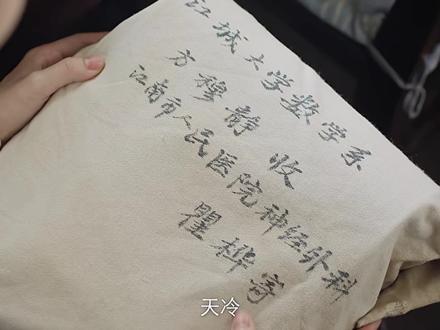 江城大学数学系
方穆静收
江南市人民医院神经外科
瞿桦寄
天冷